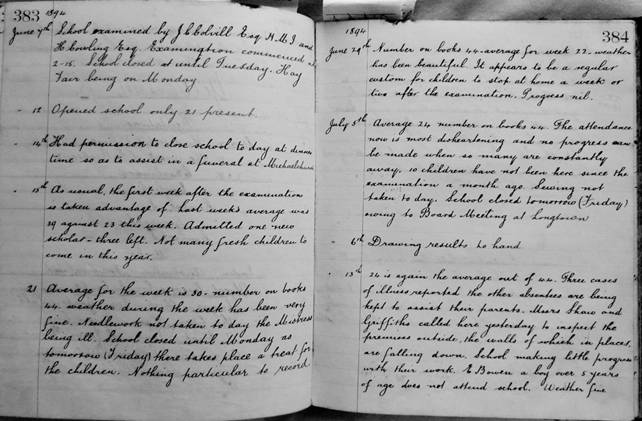 383 1894
June 7th School examined by J C Colvill Esq H.M.I and
H Cowling Esq. Examination commenced at
2-15. School closed at until Tuesday. Hay
Fair being on Monday
" 12 Opened school only 21 present.
" 14th Had permission to close school to day at dinner
time so as to assist in a funeral at Michaelchurch
" 15th As usual, the first week after the examination
is taken advantage of last weeks average was
29 against 23 this week. Admitted one new
scholar - three left. Not many fresh children to
come in this year.
21 Average for the week is 30 - number on books
44. weather during the week has been very
fine. Needlework not taken to day the Mistress
being ill. School closed until Monday as
tomorrow (Friday) there takes place a treat for
the children. Nothing particular to record
1894 384
June 29th Number on books 44 - average for week 27. weather
has been beautiful. It appears to be a regular
custom for children to stop at home a week or
two after the examination. Progress nil.
July 5th Average 24 number on books 44. The attendance
now is most disheartening and no progress can
be made when so many are constantly
away. 10 children have not been here since the
examination a month ago. Sewing not
taken to day. School closed tomorrow (Friday)
owing to Board Meeting at Longtown
" 6th Drawing results to hand
" 13th 24 is again the average out of 44. Three cases
of illness reported the other absentees are being
kept to assist their parents. Messrs Shaw and
Griffiths called here yesterday to inspect the
premises outside, the walls of which in places,
are falling down. School making little progress
with their work. E Bowen a boy over 5 years
of age does not attend school. Weather fine